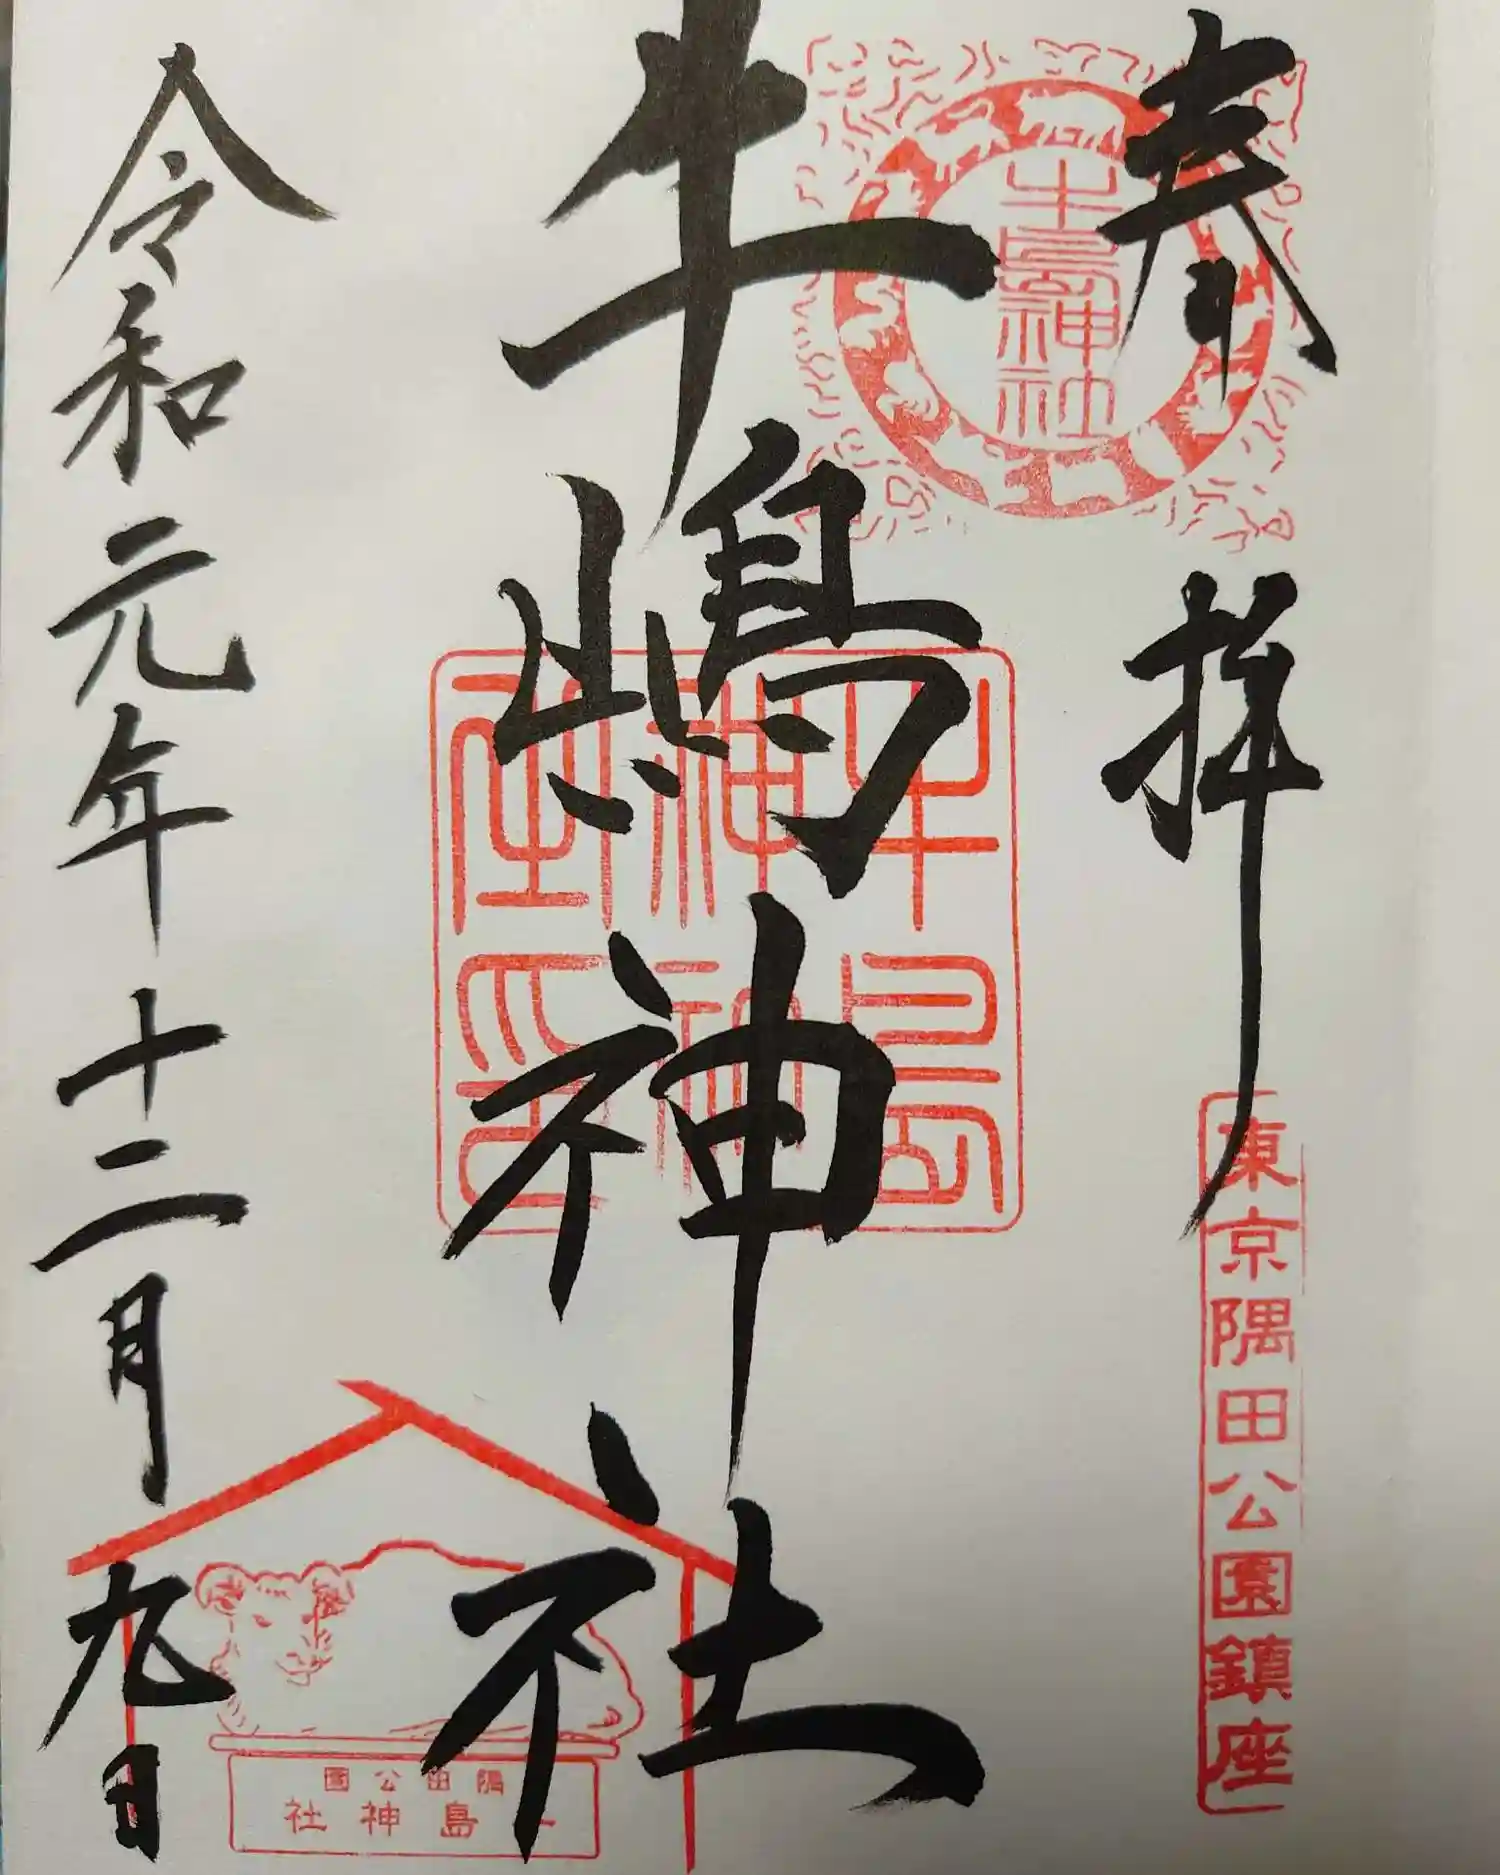 奉拝
牛島神社
東京隅田公園鎮座
牛嶋神社
牛島神社印
令和元年十二月九日
隅田公園
島神社